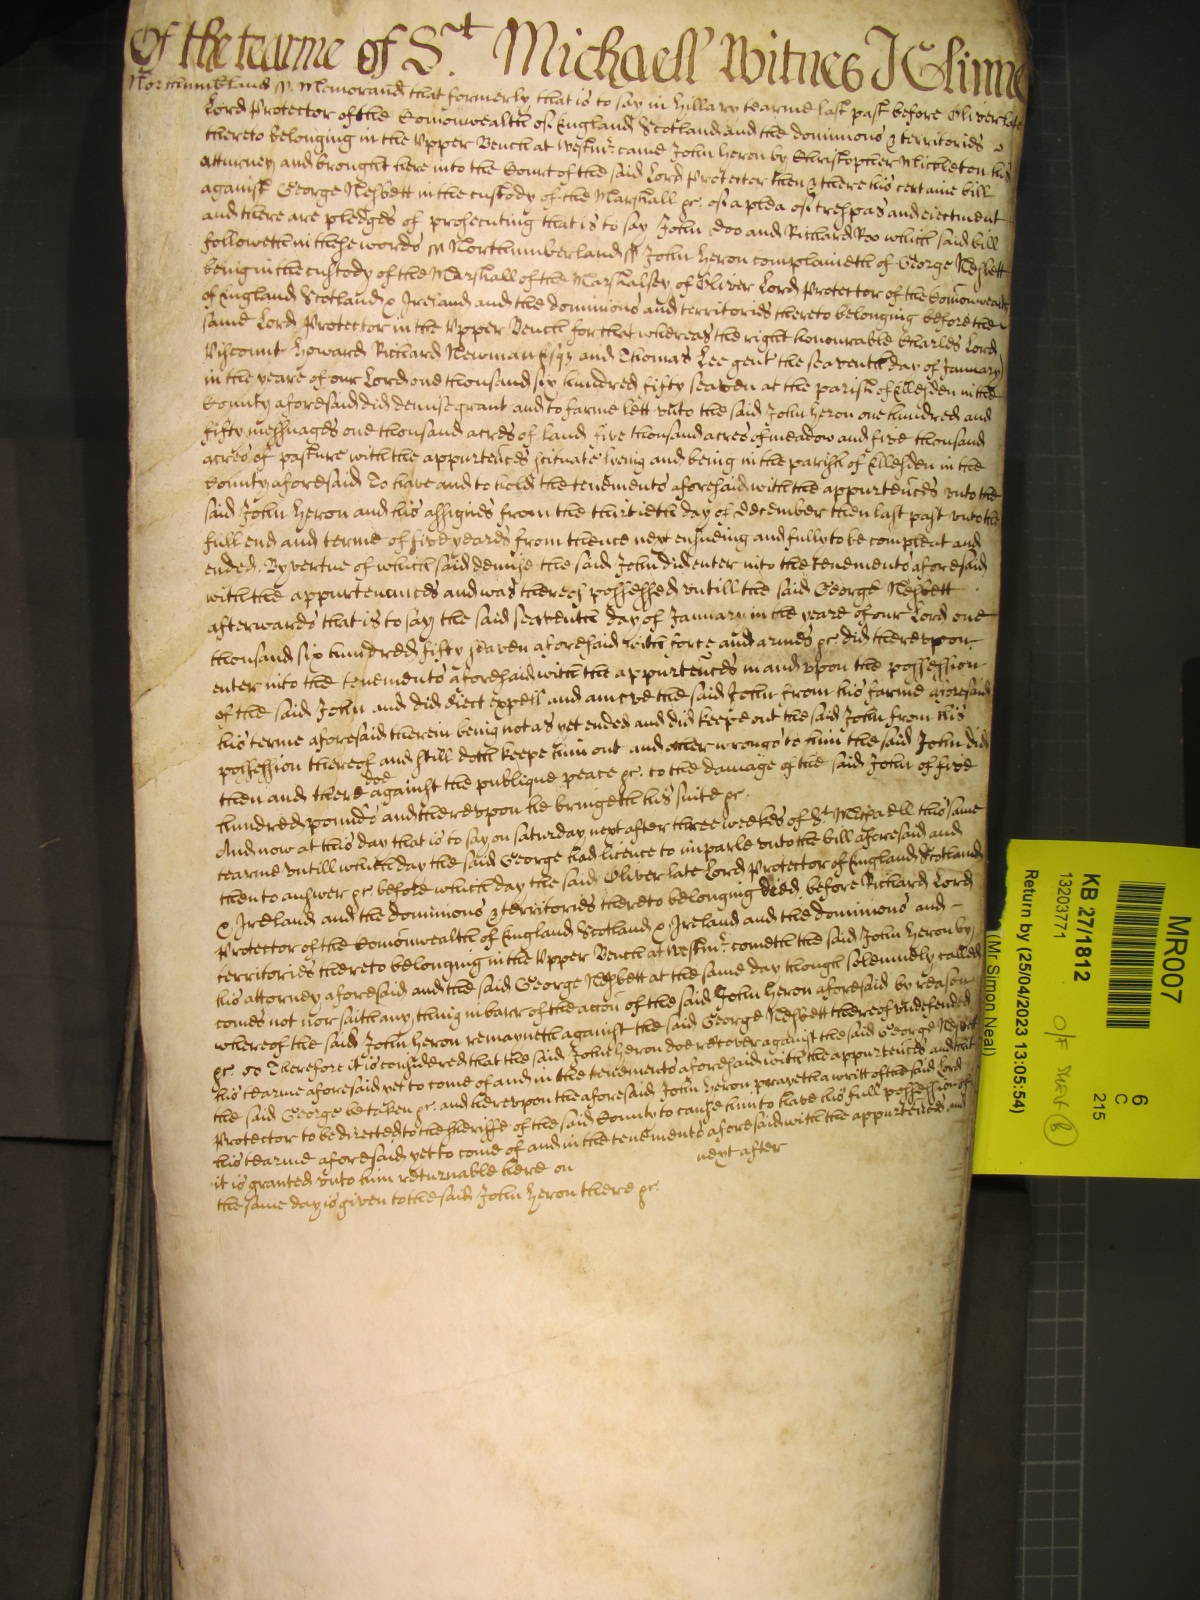 Of the tearme of St. Michaell Witnes J Glinne
Northumbland ss Memorand that formerly that is to say in Hillary tearme last past before Oliver late
Lord Protector of the Comonwealth of England Scotland and the dominions & territories
thereto belonging in the Upper Bench at Westmr. came John Heron by Christopher Mickleton his
atturney and brought here into the Court of the said Lord Protector then & there his certaine bill
against George Nesbett in the custody of the Marshall &c. of a plea of trespas and eiectment
and there are pledges of prosecuting that is to say John Doo and Richard Roo which said bill
followeth in these words ss Northumberland ss John Heron complaineth of George Nesbett
being in the custody of the Marshall of the Marshalsey of Oliver Lord Protector of the Comonwealth
of England Scotland & Ireland and the dominions and territories thereto belonging before the
same Lord Protector in the Upper Bench for that whereas the right honourable Charles Lord
Viscount Howard Richard Newman Esqr and Thomas Lee gent the seaventh day of January
in the yeare of our Lord one thousand six hundred fifty seaven at the parish of Ellesden in the
County aforesaid did demise grant and to farme lett unto the said John Heron one hundred and
fifty messuages one thousand acres of land five thousand acres of meadow and five thousand
acres of pasture with the appurtences scituate lying and being in the parish of Ellesden in the
County aforesaid To have and to hold the tenements aforesaid with the appurtences unto the
said John Heron and his assignes from the thirtieth day of December then last past unto the
full end and terme of five yeares from thence next ensueing and fully to be compleat and
ended. By vertue of which said demise the said John did enter into the tenements aforesaid
with the appurtenances and was thereof possessed untill the said George Nesbett
afterwards that is to say the said seaventh day of January in the yeare of our Lord one
thousand six hundred fifty seaven aforesaid with force and armes &c did thereupon
enter into the tenements aforesaid with the appurtences in and upon the possession
of the said John and did eiect expell and amove the said John from his farme aforesaid
his terme aforesaid therein being not as yet ended and did keepe out the said John from his
possession thereof and still doth keepe him out and other wrongs to him the said John did
then and there doe against the publique peace &c. to the damage of the said John of five
hundred pounds and thereupon he bringeth his suite &c.
And now at this day that is to say on saturday next after three weekes of St Michaell this same
tearme untill which day the said George had licence to imparle unto the bill aforesaid and
then to answer &c. before which day the said Oliver late Lord Protector of England Scotland
& Ireland and the dominions & territories thereto belonging died before Richard Lord
Protector of the Comonwealth of England Scotland & Ireland and the dominions and
territories thereto belonging in the Upper Bench at Westmr. cometh the said John Heron by
his attorney aforesaid and the said George Nesbett at the same day though solemnely called
comes not nor saith any thing in barr of the accon of the said John Heron aforesaid by reason
whereof the said John Heron remayneth against the said George Nesbett thereof undefended
&c. so Therefore it is considered that the said John Heron doe recover against the said George Nesbett
his tearme aforesaid yet to come of and in the tenements aforesaid with the appurtences and that
the said George be taken &c. and hereupon the aforesaid John Heron prayeth a writt of the said Lord
Protector to be directed to the sheriffe of the said County to cause him to have his full possession of
his tearme aforesaid yet to come of and in the tenements aforesaid with the appurtences and
it is granted unto him returnable here on next after
the same day is given to the said John Heron there &c.
MR007
6
C
215
KB 27/1812
13203771
O/F
Return by (25/04/2023 13:05:54)
(Mr Simon Neal)